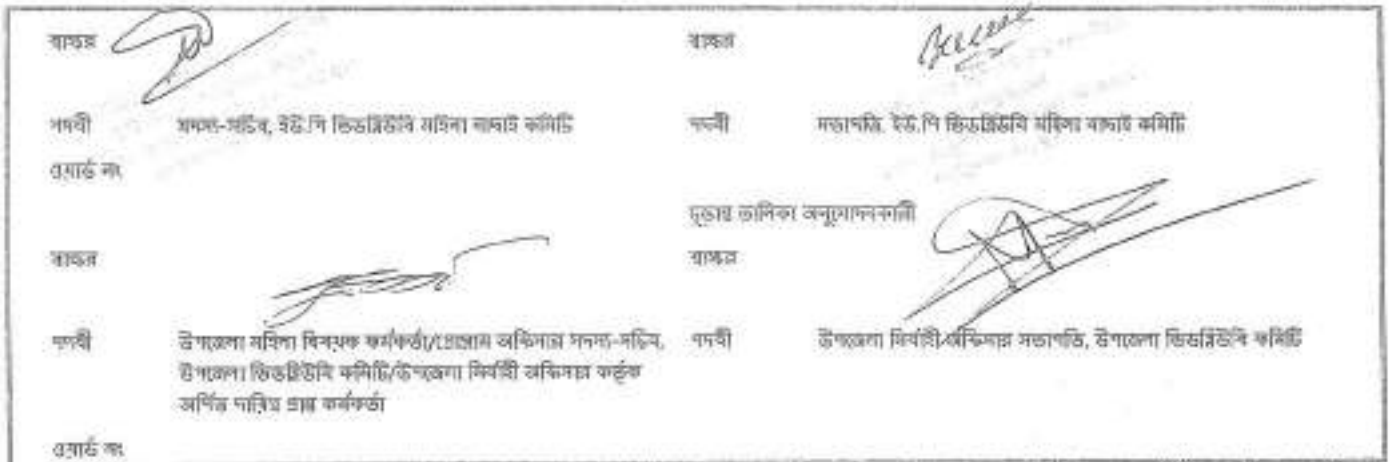 স্বাক্ষর
স্বাক্ষর
পদবী সদস্য-সচিব, ইউ.পি ভিডব্লিউবি মহিলা বাছাই কমিটি
পদবী সভাপতি, ইউ.পি ভিডব্লিউবি মহিলা বাছাই কমিটি
ওয়ার্ড নং
চূড়ান্ত তালিকা অনুমোদনকারী
স্বাক্ষর
স্বাক্ষর
পদবী উপজেলা মহিলা বিষয়ক কর্মকর্তা/প্রোগ্রাম অফিসার সদস্য-সচিব,
উপজেলা ভিডব্লিউবি কমিটি/উপজেলা নির্বাহী অফিসার কর্তৃক
অর্পিত দায়িত্ব প্রাপ্ত কর্মকর্তা
পদবী উপজেলা নির্বাহী অফিসার সভাপতি, উপজেলা ভিডব্লিউবি কমিটি
ওয়ার্ড নং